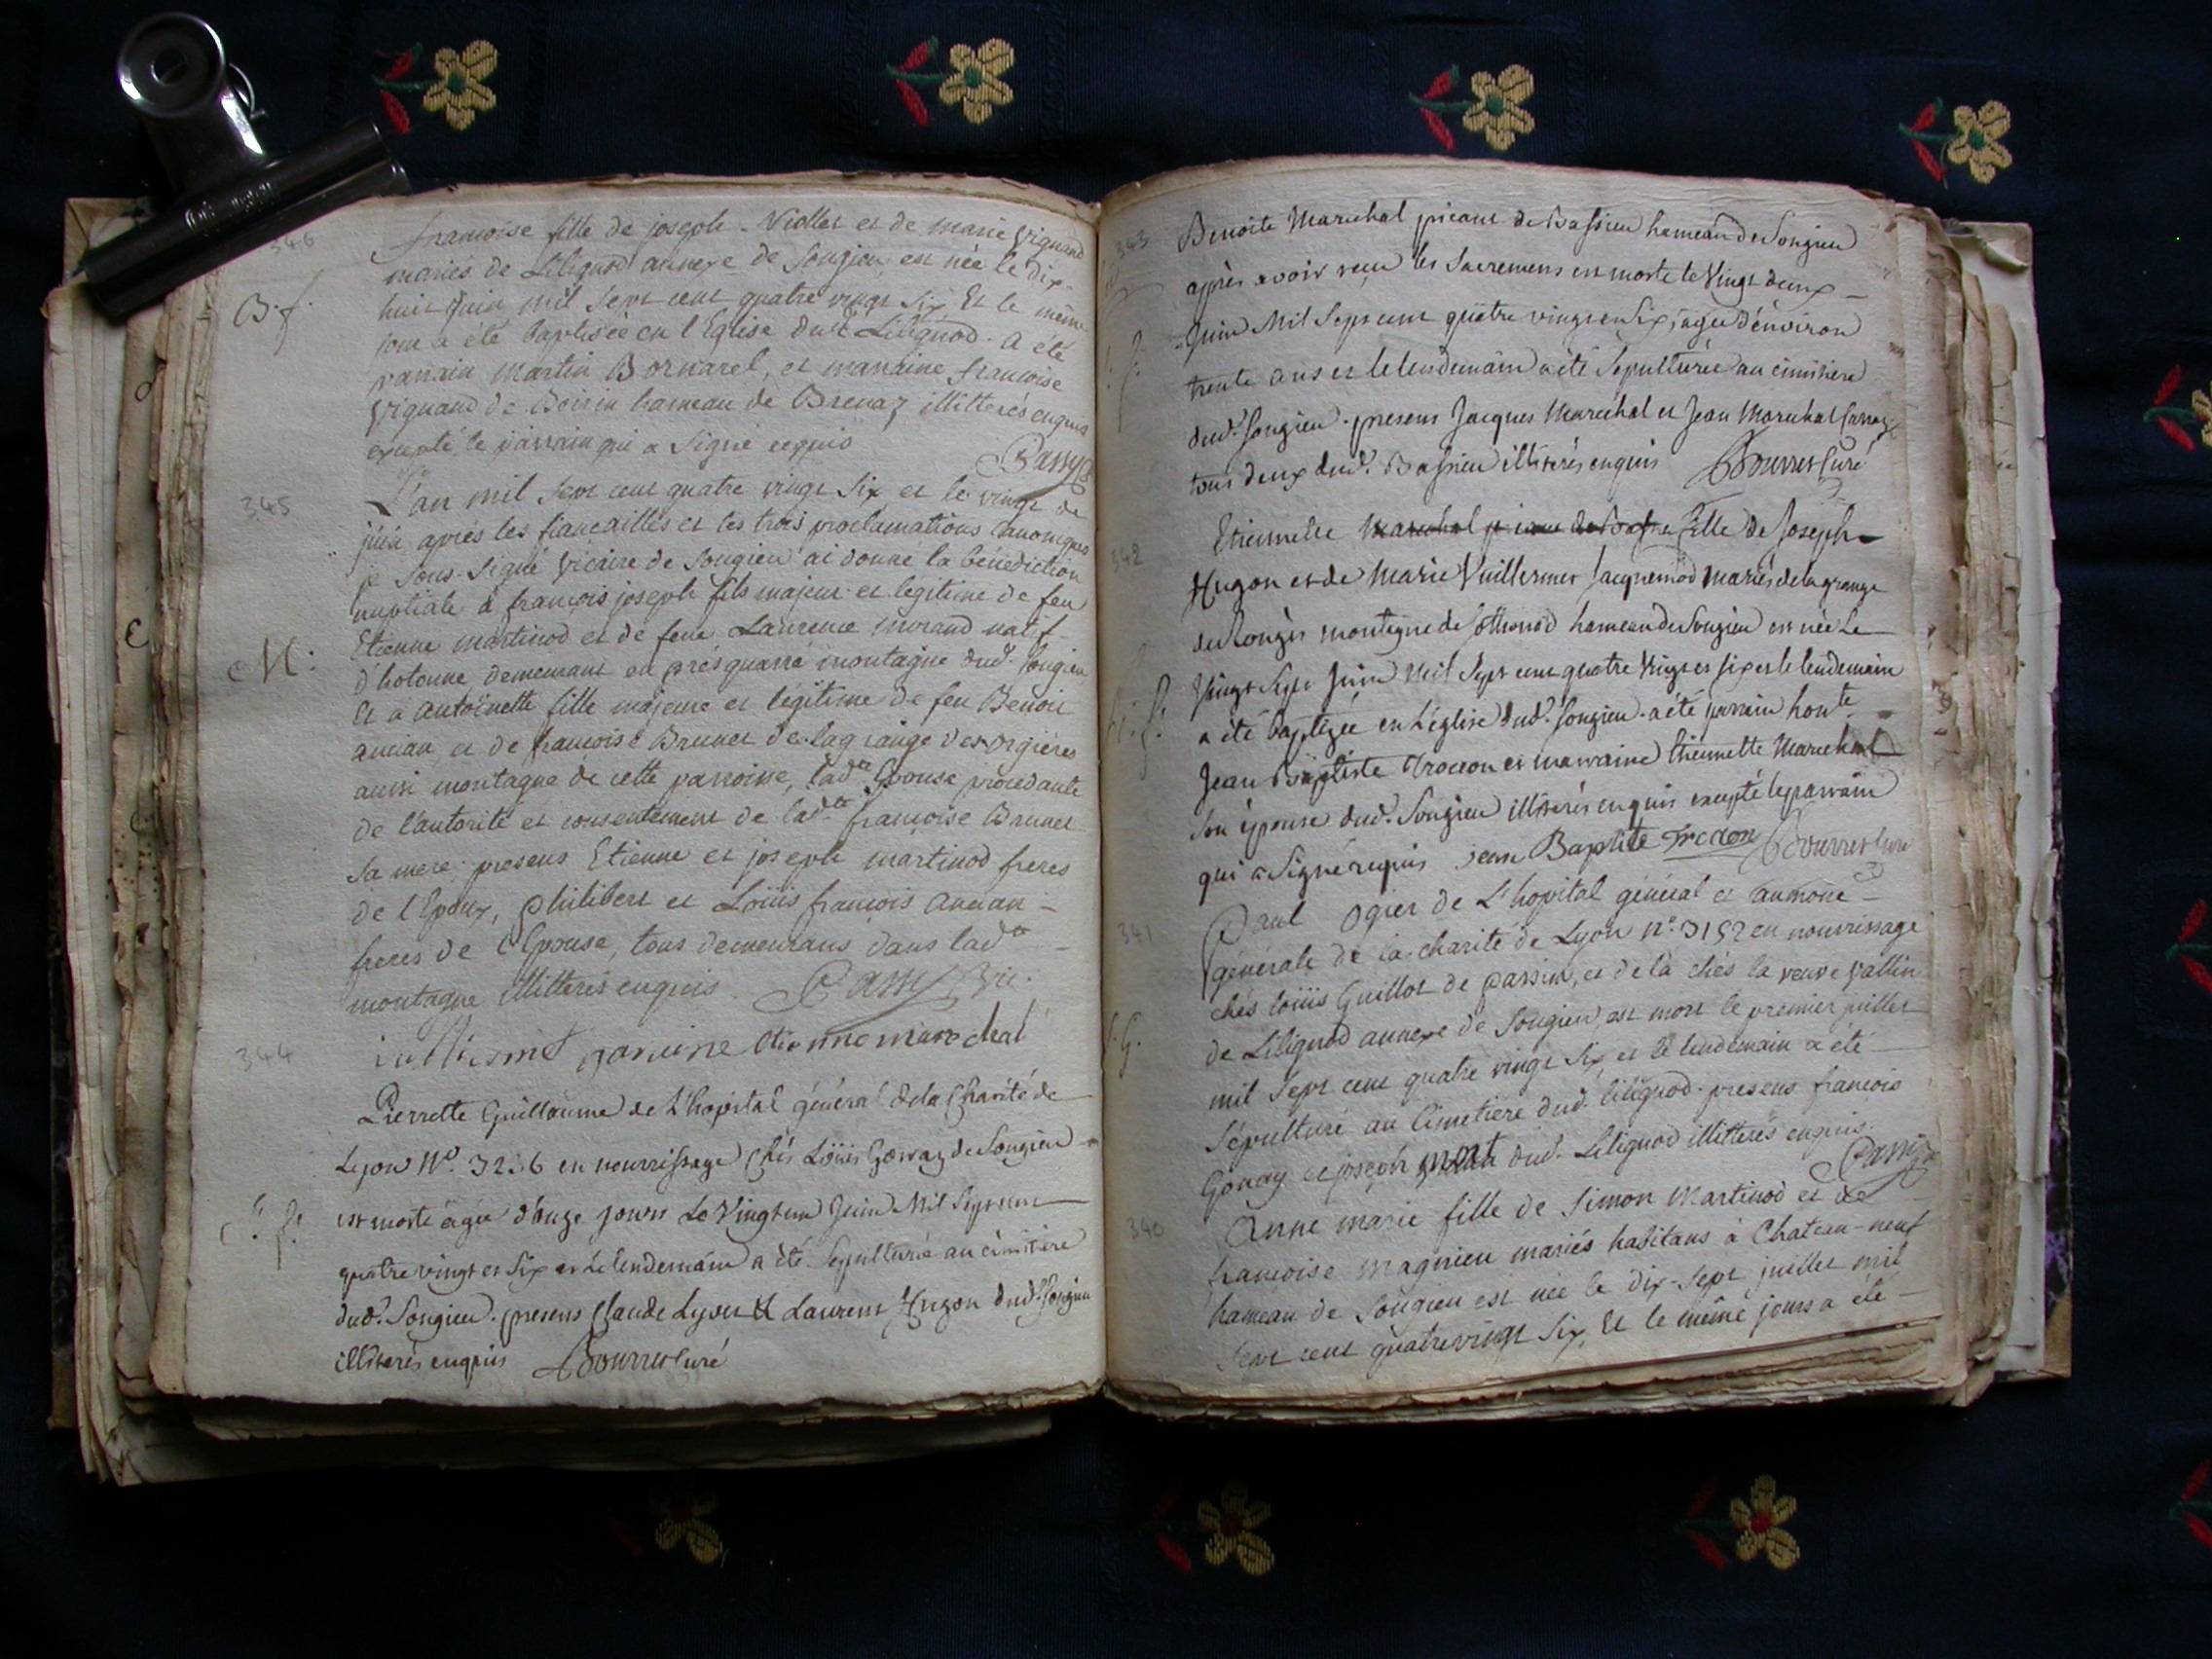 346
françoise fille de joseph Viollet et de marie Vignand
mariés de Lilignod annexe de Songieu est née le dix-
huit juin mil sept cent quatre vingt six Et le même
B. f.
jour a été baptisée en l'Eglise dud. Lilignod. a été
parrain martin Bornarel, et marraine françoise
Vignand de Bossin hameau de Brenaz illitterés enquis
excepté le parrain qui a signé requis
Passy
345
L'an mil sept cent quatre vingt six et le vingt de
juin après les fiancailles et les trois proclamations canoniques
je sous-signé Vicaire de Songieu ai donné la bénédiction
nuptiale à françois joseph fils majeur et legitime de feu
Etienne martinod et de feue Laurence morand natif
M:
d'hotonne demeurant en prés quarré montagne dud. Songieu
Et a antoinette fille majeure et légitime de feu Benoit
ancian et de francoise Brunet de la grange des orgières
aussi montagne de cette parroisse, lad.te Epouse procedante
de l'autorité et consentement de lad.te françoise Brunet
sa mere: presens Etienne et joseph martinod freres
de l'Epoux, philibert et Loüis françois ancian -
freres de l'Epouse, tous demeurans dans lad.te -
montagne illitterés enquis. Passy Vic.
344
etienne marechal
Pierrette Guillaume de L'hopital général de la Charité de
Lyon N.o 3236 en nourrissage chés Loüis Govray de Songieu
S. f.
est morte agée d'onze jours Le Vingt un Juin Mil Sept cent
quatre vingt et six et le lendemain a été Sepulturée au cimitière
dud. Songieu. presens Claude Lyvet & Laurent Hugon dud. Songieu
illiterés enquis Bourret Curé
343
Benoite Marechal picaut de Bassieu hameau de Songieu
après avoir reçu les Sacremens est morte le Vingt deux -
Juin Mil Sept cent quatre vingt en Six, agée d'environ
trente ans et le lendemain a été Sepulturée au cimitiere
dud. Songieu. presens Jacques Maréchal et Jean Marechal
tous deux dud. Bassieu illiterés enquis Bourret Curé
342
Etiennette Marechal picaut de Bassieu fille de Joseph
Hugon et de Marie Vuillermet Jacquemod mariés de la grange
du Longès montagne de Sothonod hameau de Songieu est née Le
Vingt Sept Juin Mil Sept cent quatre Vingt et six et le lendemain
a été baptizée en L'église dud. Songieu. a été parrain
Jean Baptiste Trocon et marraine Etiennette Marechal
Son épouse dud. Songieu illiterés enquis excepté le parrain
qui a Signé requis jean Baptite Trocon Bourret Curé
341
Paul Ogier de L'hopital général et aumone
générale de la charité de Lyon n.o 3152 en nourrissage
chés loüis Guillot de passin, et de là chés la veuve vallin
de Lilignod annexe de Songieu, est mort le premier juillet
mil sept cent quatre vingt six, et le lendemain a été
Sépulturé au Cimetiere dud. lilignod. presens françois
Gonay et joseph dud. Lilignod illitterés enquis.
Passy
340
Anne marie fille de Simon Martinod et de
françoise magnieu mariés habitans à Chateau-neuf
hameau de Songieu est née le dix-sept juillet mil
sept cent quatre vingt six, Et le même jours a été -